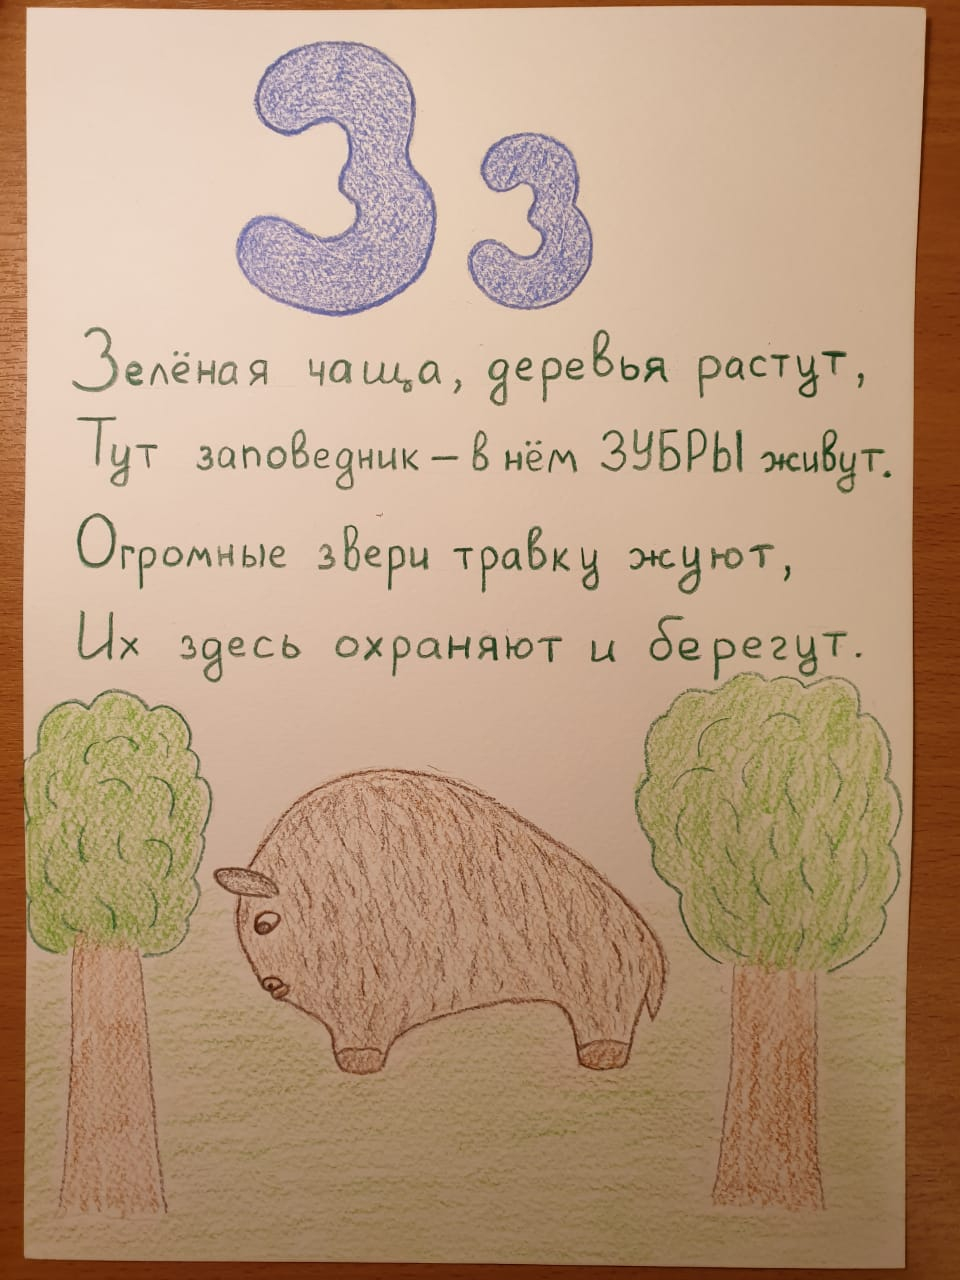 З з
Зелёная чаща, деревья растут,
Тут заповедник – в нём ЗУБРЫ живут.
Огромные звери травку жуют,
Их здесь охраняют и берегут.